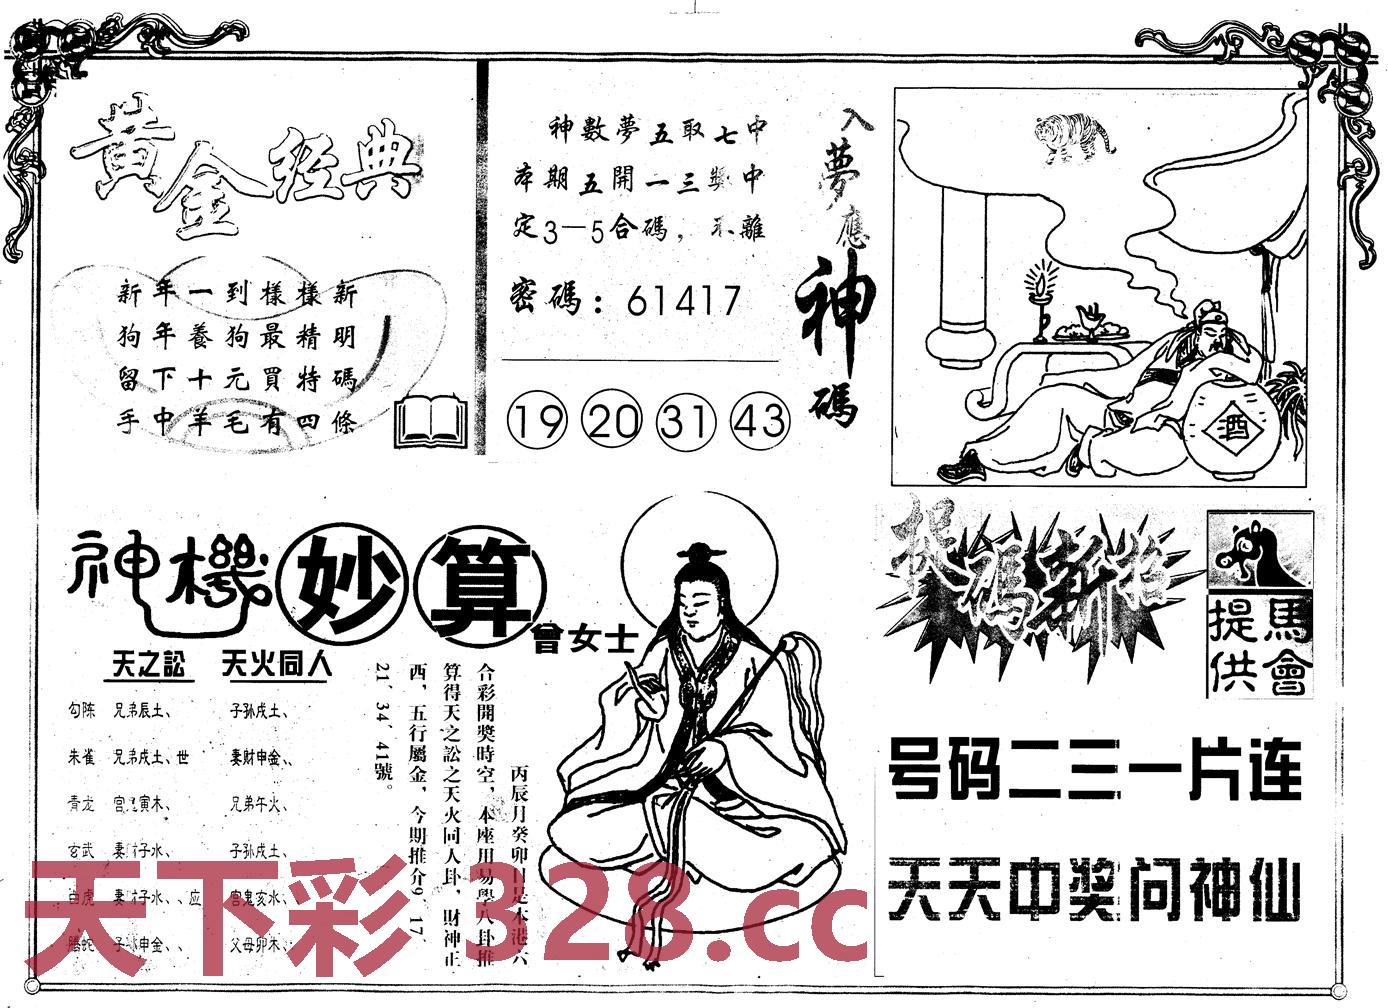 黃金經典
新年一到樣樣新
狗年養狗最精明
留下十元買特碼
手中羊毛有四條
神數夢五取七中
本期五開一三獎中
定3—5合碼，不離
密碼：61417
19 20 31 43
入夢應神碼
酒
神機妙算
曾女士
天之訟 天火同人
勾陈 兄弟辰土、 子孙戌土、
朱雀 兄弟戌土、世 妻财申金、、
青龙 寅木、 兄弟午火、
玄武 妻财子水、 子孙戌土、
白虎 妻财子水、、应 宫鬼亥水、
腾蛇 申金、、 父母卯木、
丙辰月癸卯日是本港六
合彩開獎時空，本座用易學八卦推
算得天之訟之天火同人卦，財神正
西，五行屬金，今期推介9、17、
21、34、41號。
捉碼新招
馬會
提供
号码二三一片连
天天中奖问神仙
天下彩 328.cc